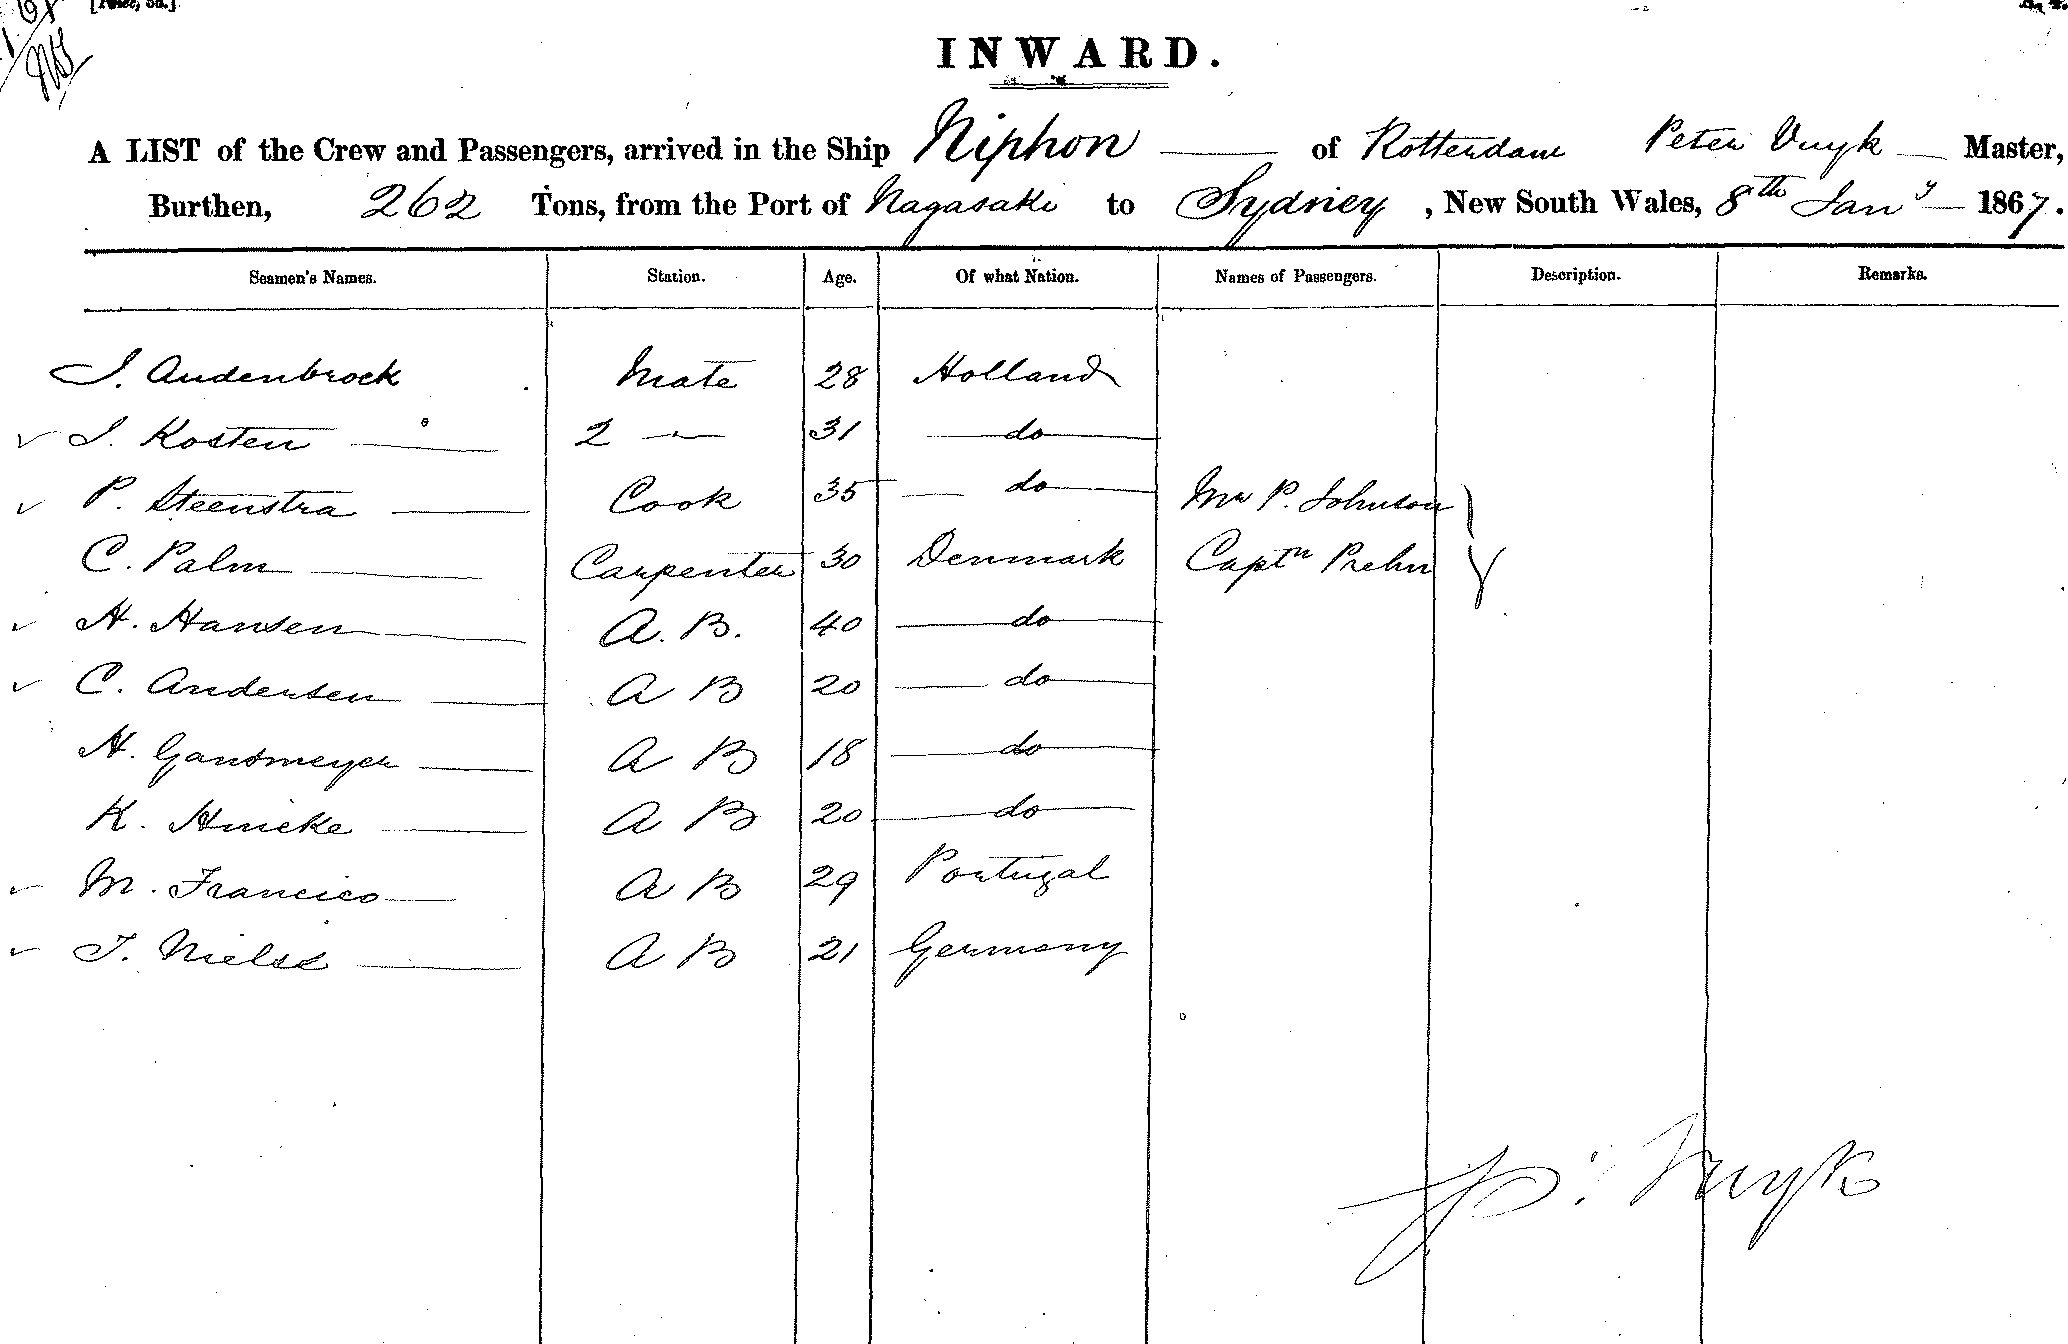 INWARD.
A LIST of the Crew and Passengers, arrived in the Ship Niphon of Rotterdam Peter Vuyk Master,
Burthen, 262 Tons, from the Port of Nagasaki to Sydney, New South Wales, 8th Jany 1867.
Seamen's Names. Station. Age. Of what Nation. Names of Passengers. Description. Remarks.
J. Audenbrock Mate 28 Holland
J. Kosten 2 — 31 do
P. Steenstra Cook 35 do Mr P. Johnson
C. Palm Carpenter 30 Denmark Captn Prehn
H. Hansen A. B. 40 do
C. Andersen A B 20 do
H. Gandmeyer A B 18 do
K. A B 20 do
M. Francico A B 29 Portugal
J. A B 21 Germany
P. Vuyk